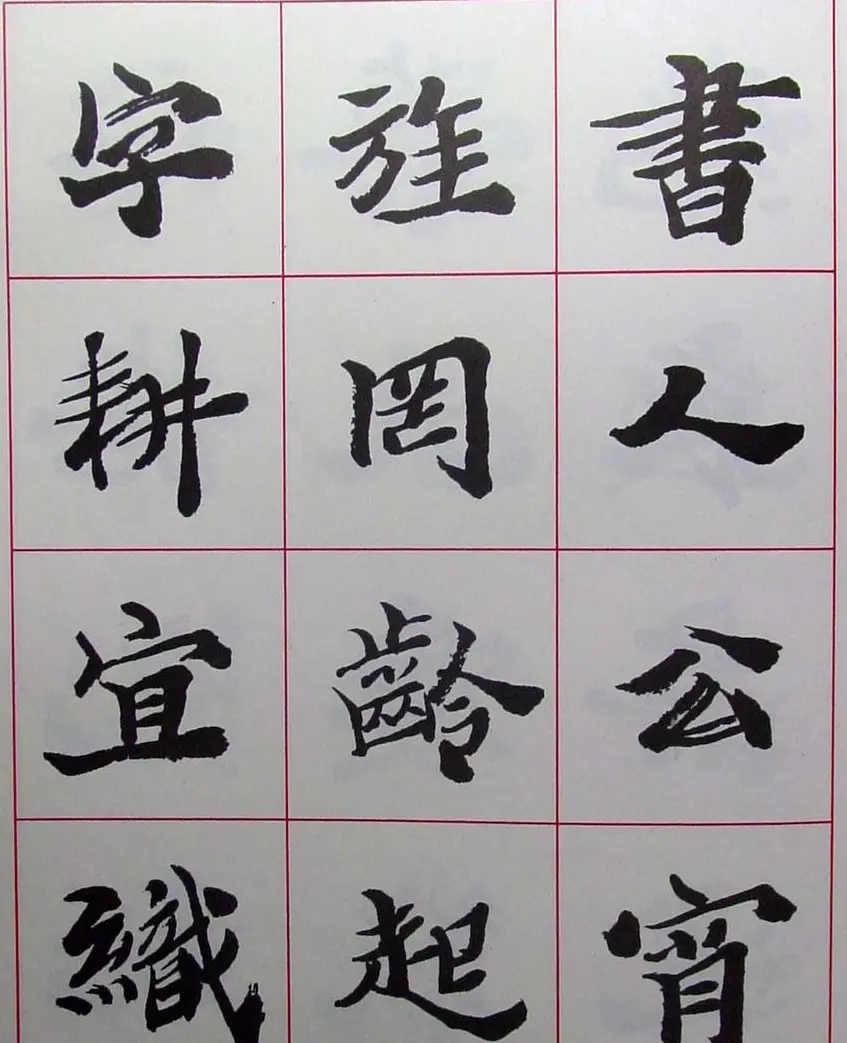 書人公宵
旌罔齡起
字耕宜織